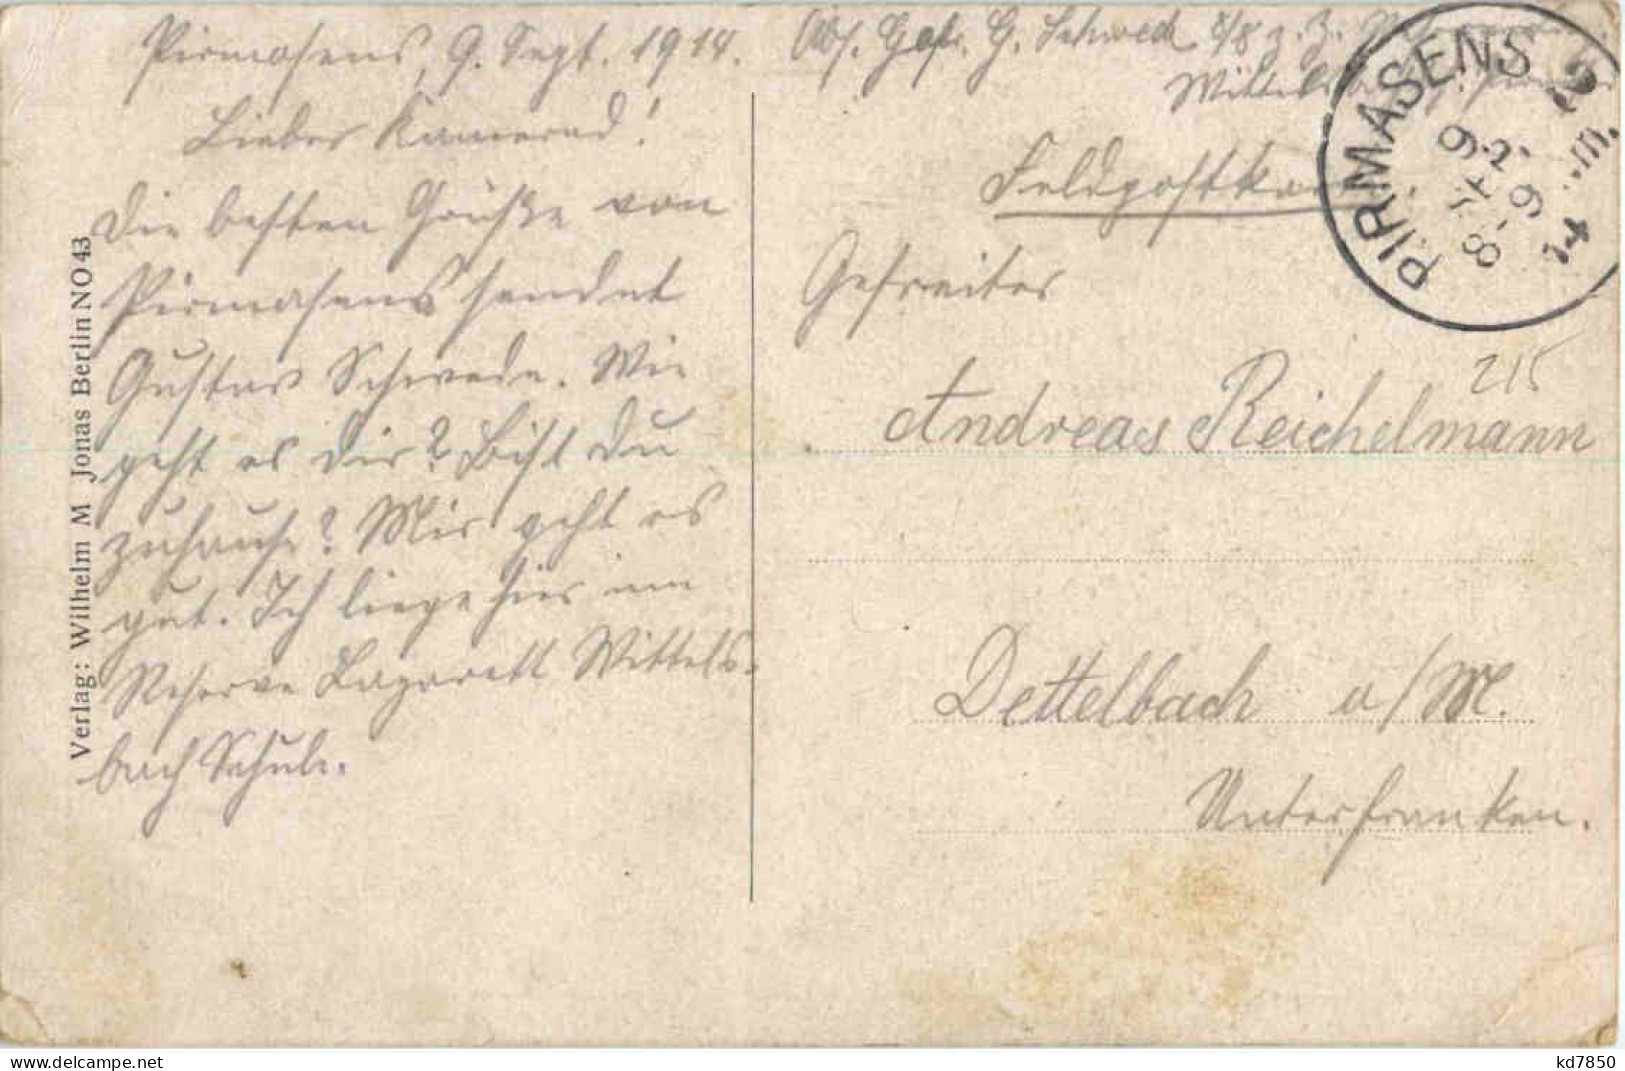 Pirmasens, 9. Sept. 1914.
Lieber Kamerad!
Die besten Grüße von
Pirmasens sendet
Gustav Schwede. Wie
geht es dir? Bist du
zuhause? Mir geht es
gut. Ich liege hier im
Reserve Lazarett Wittels-
bach Schule.
Verlag: Wilhelm M Jonas Berlin NO 43
Abs. Gef. G. Schwede 8/8 z. Z.
Feldpostkarte
PIRMASENS 2
9 SEP.
8-9
14
Gefreiter
215
Andreas Reichelmann
Dettelbach a/M.
Unterfranken.
kd7850